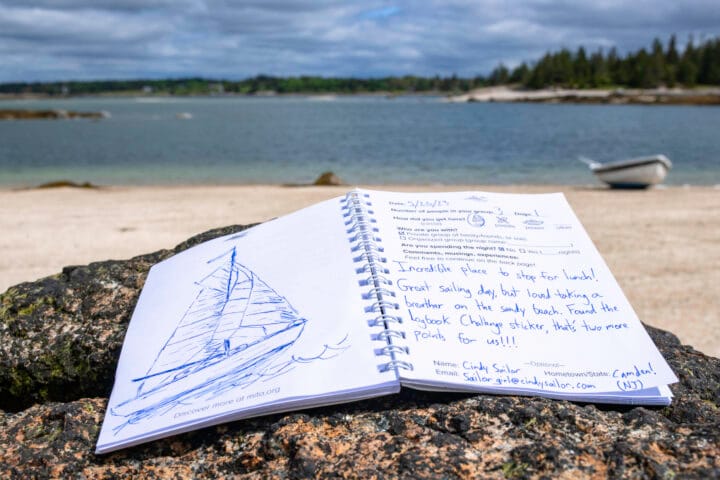 Discover more at mita.org
Date: 5/20/23
Number of people in your group: 2 Dogs: 1
How did you get here?
Who are you with?
Private group of family/friends, or solo
Organized group (group name:
Are you spending the night? No Yes ( nights)
Comments, musings, experiences:
Feel free to continue on the back page!
Incredible place to stop for lunch!
Great sailing day, but loved taking a
breather on the sandy beach. Found the
logbook Challenge sticker, that's two more
points for us!!!
-Optional-
Name: Cindy Sailor Hometown/State: Camden!
Email: Sailor.girl@cindysailor.com (NJ)